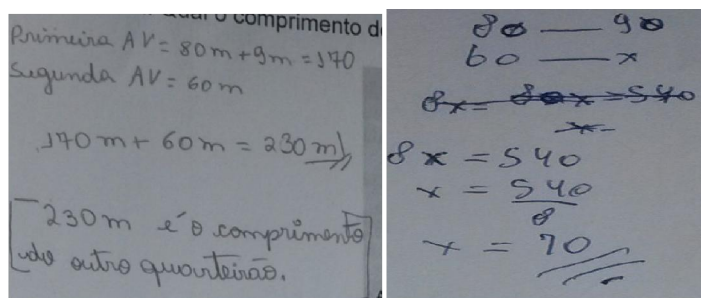 o comprimento d
Primeira AV = 80m + 9m = 170
Segunda AV = 60m
170m + 60m = 230m
230m é o comprimento
do outro quarteirão.
80 — 90
60 — x
8x = 80x = 540
x =
8x = 540
x = 540
8
x = 70